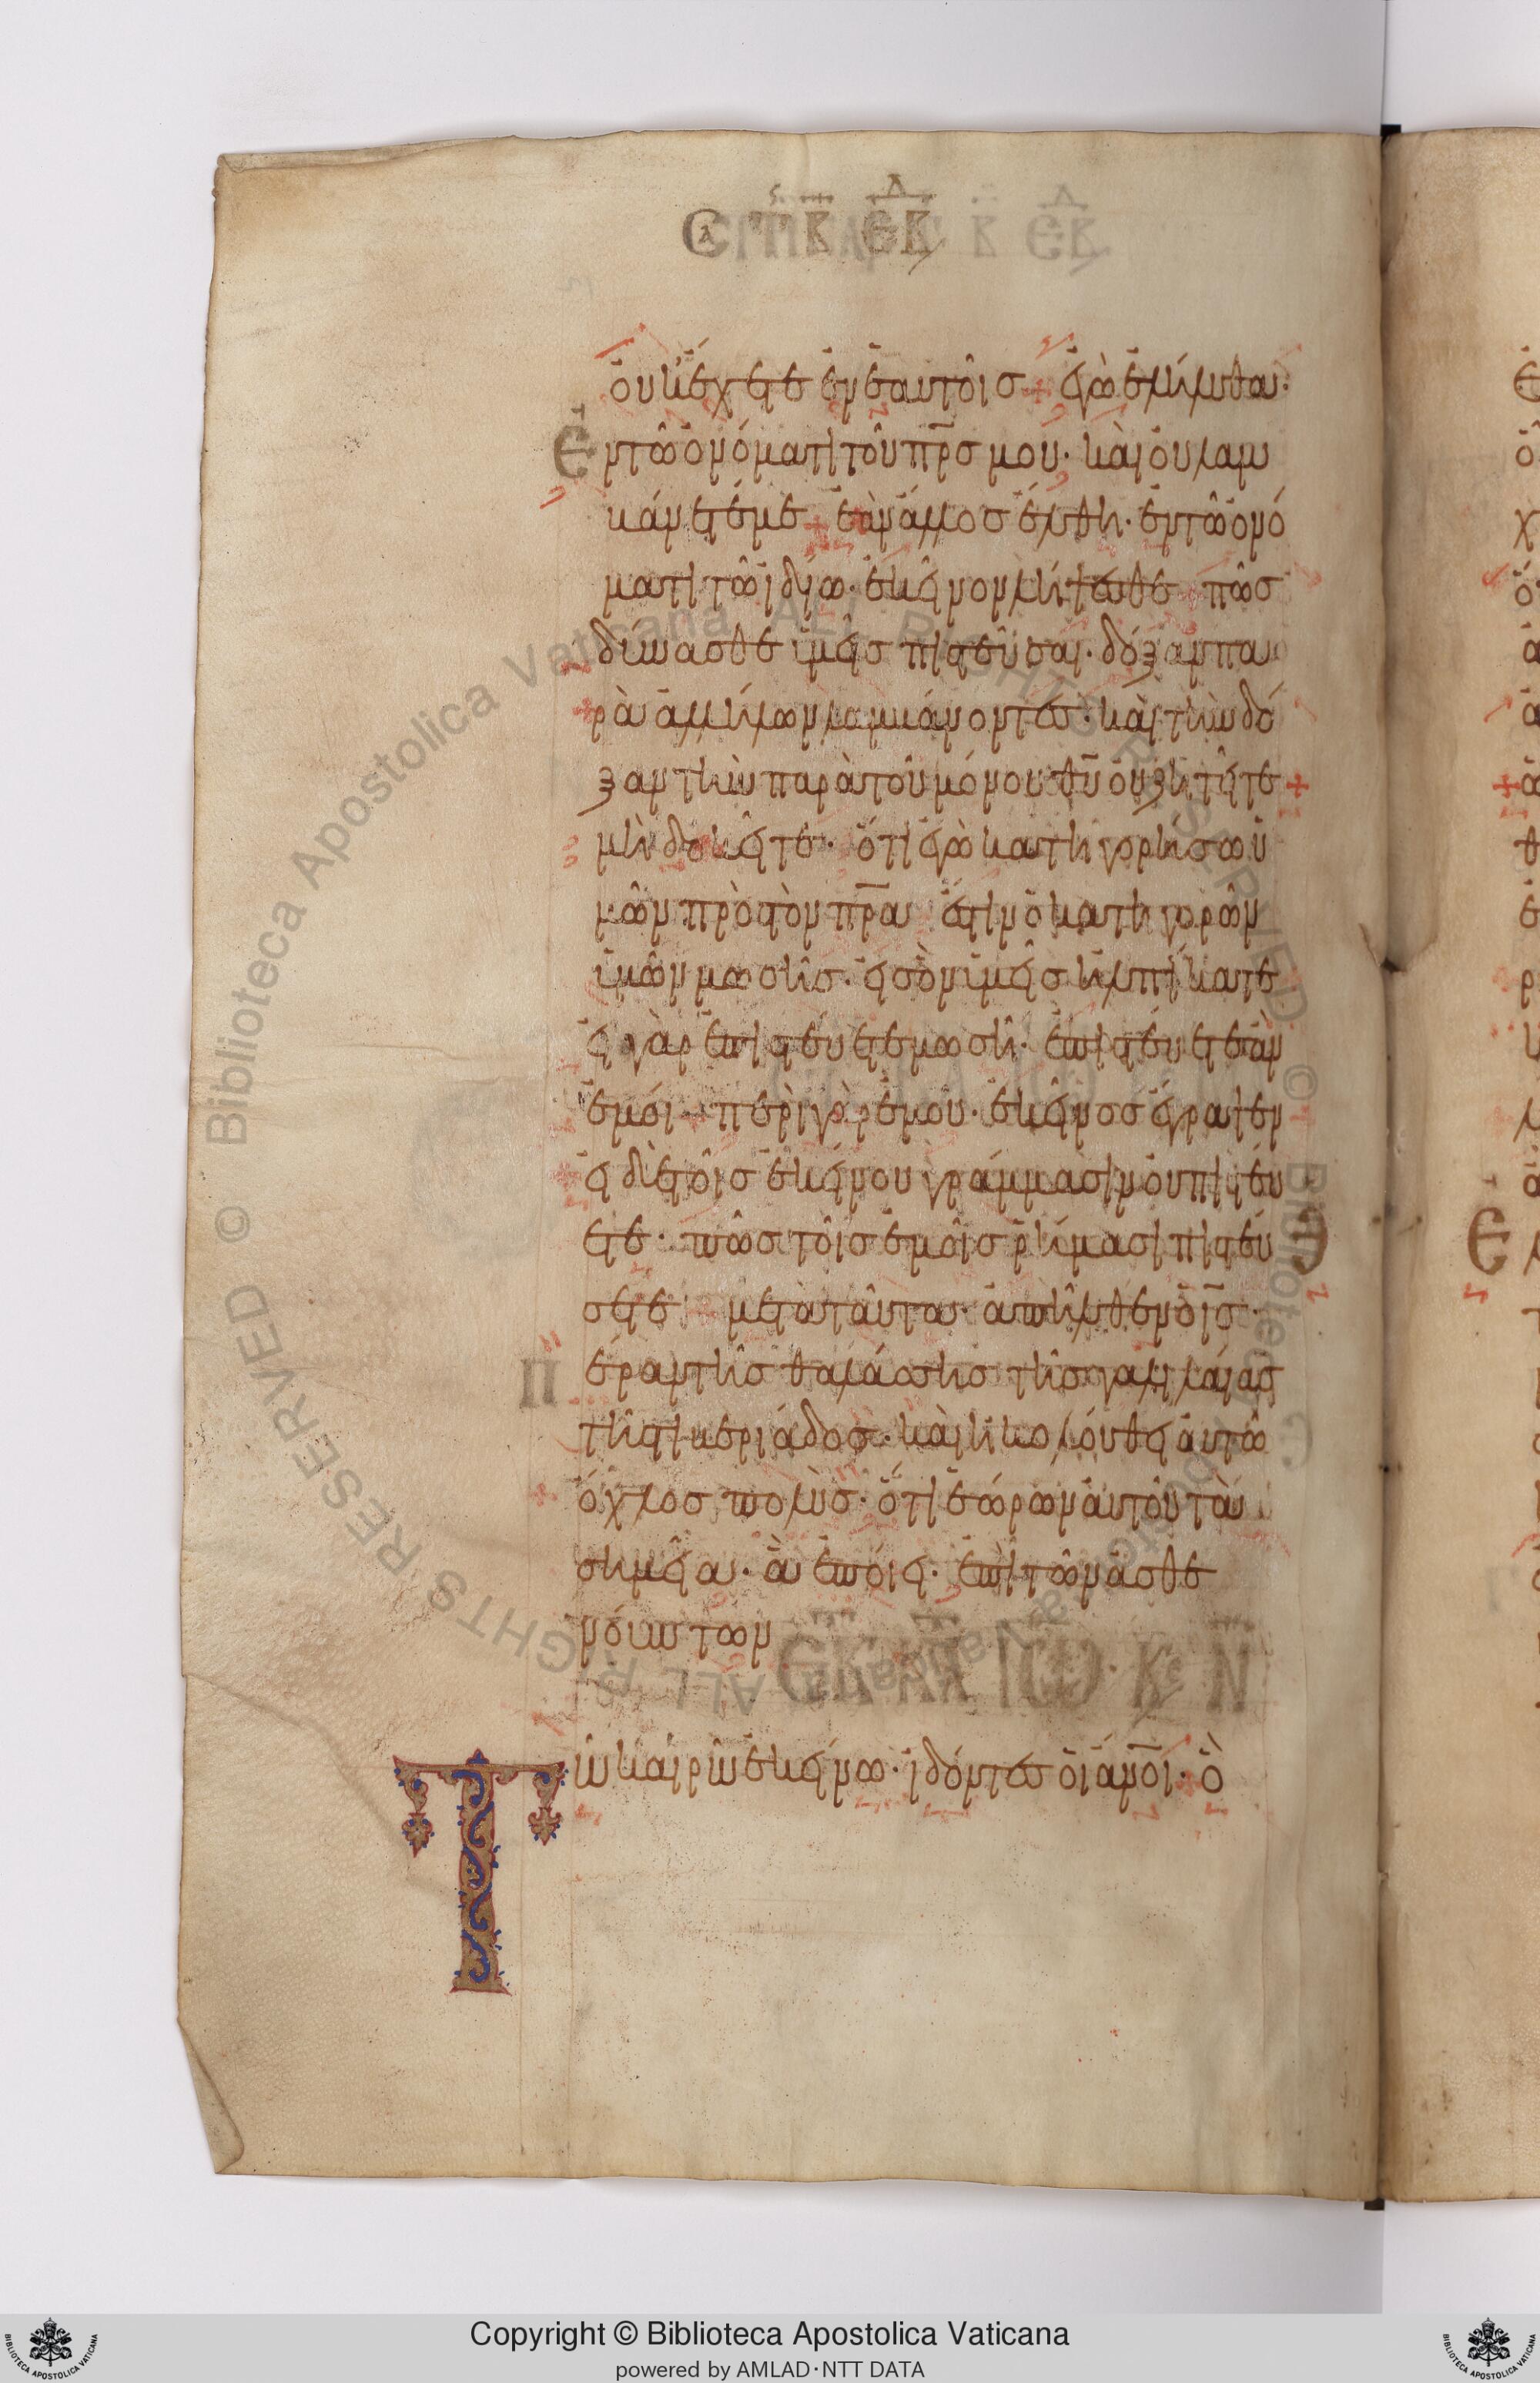 οὐκ ἔχετε ἐν ἑαυτοῖς ἐγὼ ἐλήλυθα·
Ἐν τῶ ὀνόματι τοῦ πρ̅σ μου· καὶ οὐ λαμ
βάνετέ με ἐὰν ἄλλος ἔλθη· ἐν τῶ ὀνό
ματι τῶ ἰδίω· ἐκεῖνον λήψεσθε πῶς
δύνασθε ὑμεῖς πιστεῦσαι· δόξαν πα
ρὰ ἀλλήλων λαμβάνοντες· καὶ τὴν δό
ξαν τὴν παρὰ τοῦ μόνου θ̅υ οὐ ζητεῖτε
μὴ δοκεῖτε· ὅτι ἐγὼ κατηγορήσω ὑ
μῶν πρὸς τὸν πρ̅α ἔστιν ὁ κατηγορῶν
ὑμῶν μωσῆς· εἰς ὃν ὑμεῖς ἠλπίκατε
εἰ γὰρ ἐπιστεύετε μωσῆ· ἐπιστεύετε ἂν
ἐμοί· περὶ γὰρ ἐμοῦ· ἐκεῖνος ἔγραψεν
εἰ δὲ τοῖς ἐκείνου γράμμασιν οὐ πιστεύ
ετε· πῶς τοῖς ἐμοῖς ῥήμασι πιστεύ
σετε μετὰ ταῦτα· ἀπῆλθεν ὁ ι̅ς·
πέραν τῆς θαλάσσης τῆς γαλιλαίας
τῆς τιβεριάδος· καὶ ἠκολούθει αὐτῶ
ὄχλος πολὺς· ὅτι ἑώρων αὐτοῦ τὰ
σημεῖα· ἃ ἐποίει· ἐπὶ τῶν ἀσθε
νούντων
ἐκ τοῦ κ̅α ΙΩ· Κε Ν
Τῶ καιρῶ ἐκείνω· ἰδόντες οἱ α̅νοι· ὃ
Copyright © Biblioteca Apostolica Vaticana
powered by AMLAD·NTT DATA